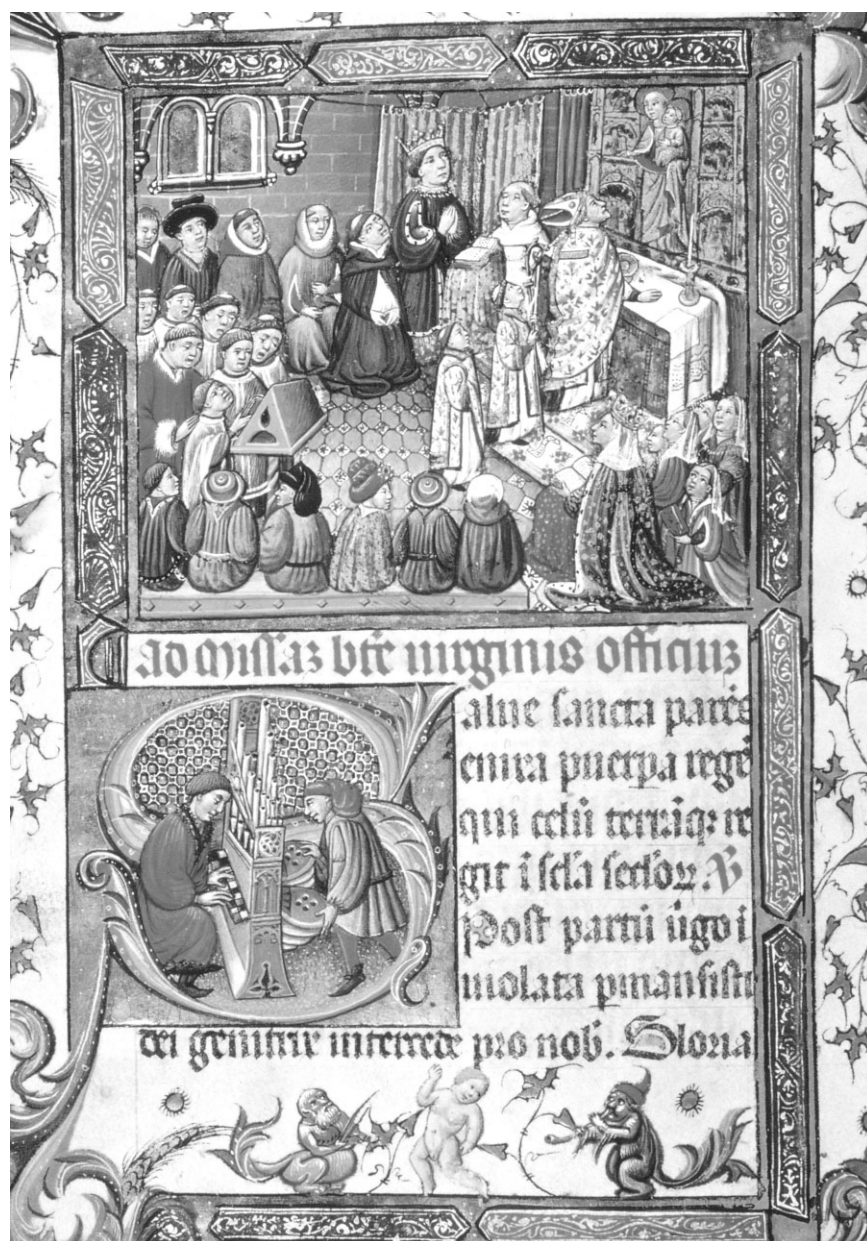 ad missaz bte uirginis officiuz
Salue sancta parēs
enixa puerpa regē
qui celū terrāqz re
git ī scl'a scl'oꝝ. V
Post partū ūgo i
uiolata pmansisti
dei genitrix intercede pro nob. Gloria